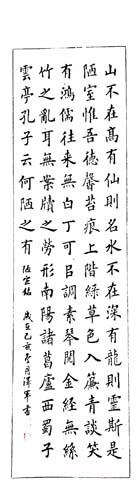 山不在髙有仙則名水不在深有龍則靈斯是
陋室惟吾德馨苔痕上階綠草色入簾青談笑
有鴻儒往来無白丁可㠯調素琴閱金經無絲
竹之亂耳無案牘之勞形南陽諸葛廬西蜀子
雲亭孔子云何陋之有 陋室銘 歲亥月軍書